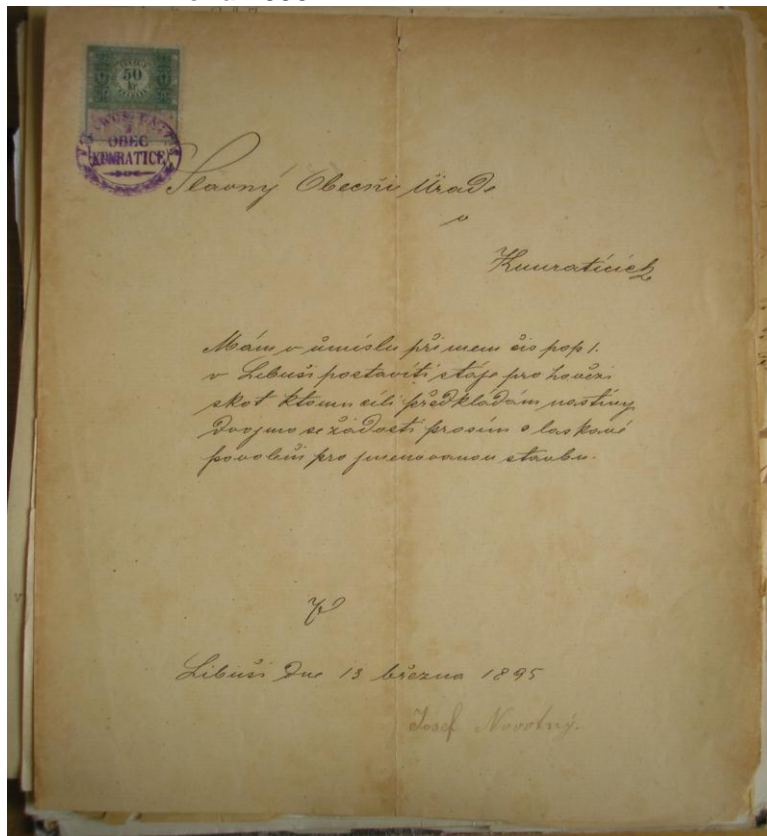 50
kr
OBEC
KUNRATICE
Slavný Obecní Úrade
v
Kunraticích
Mám v úmislu při mem čis pop 1.
v Libuši postaviti stáje pro hovězí
skot ktomu cíli předkládám nástiny
dvojmo se žádostí prosím o laskavé
povolení pro jmenovanou stavbu.
V
Libuši dne 13 března 1895
Josef Novotný.